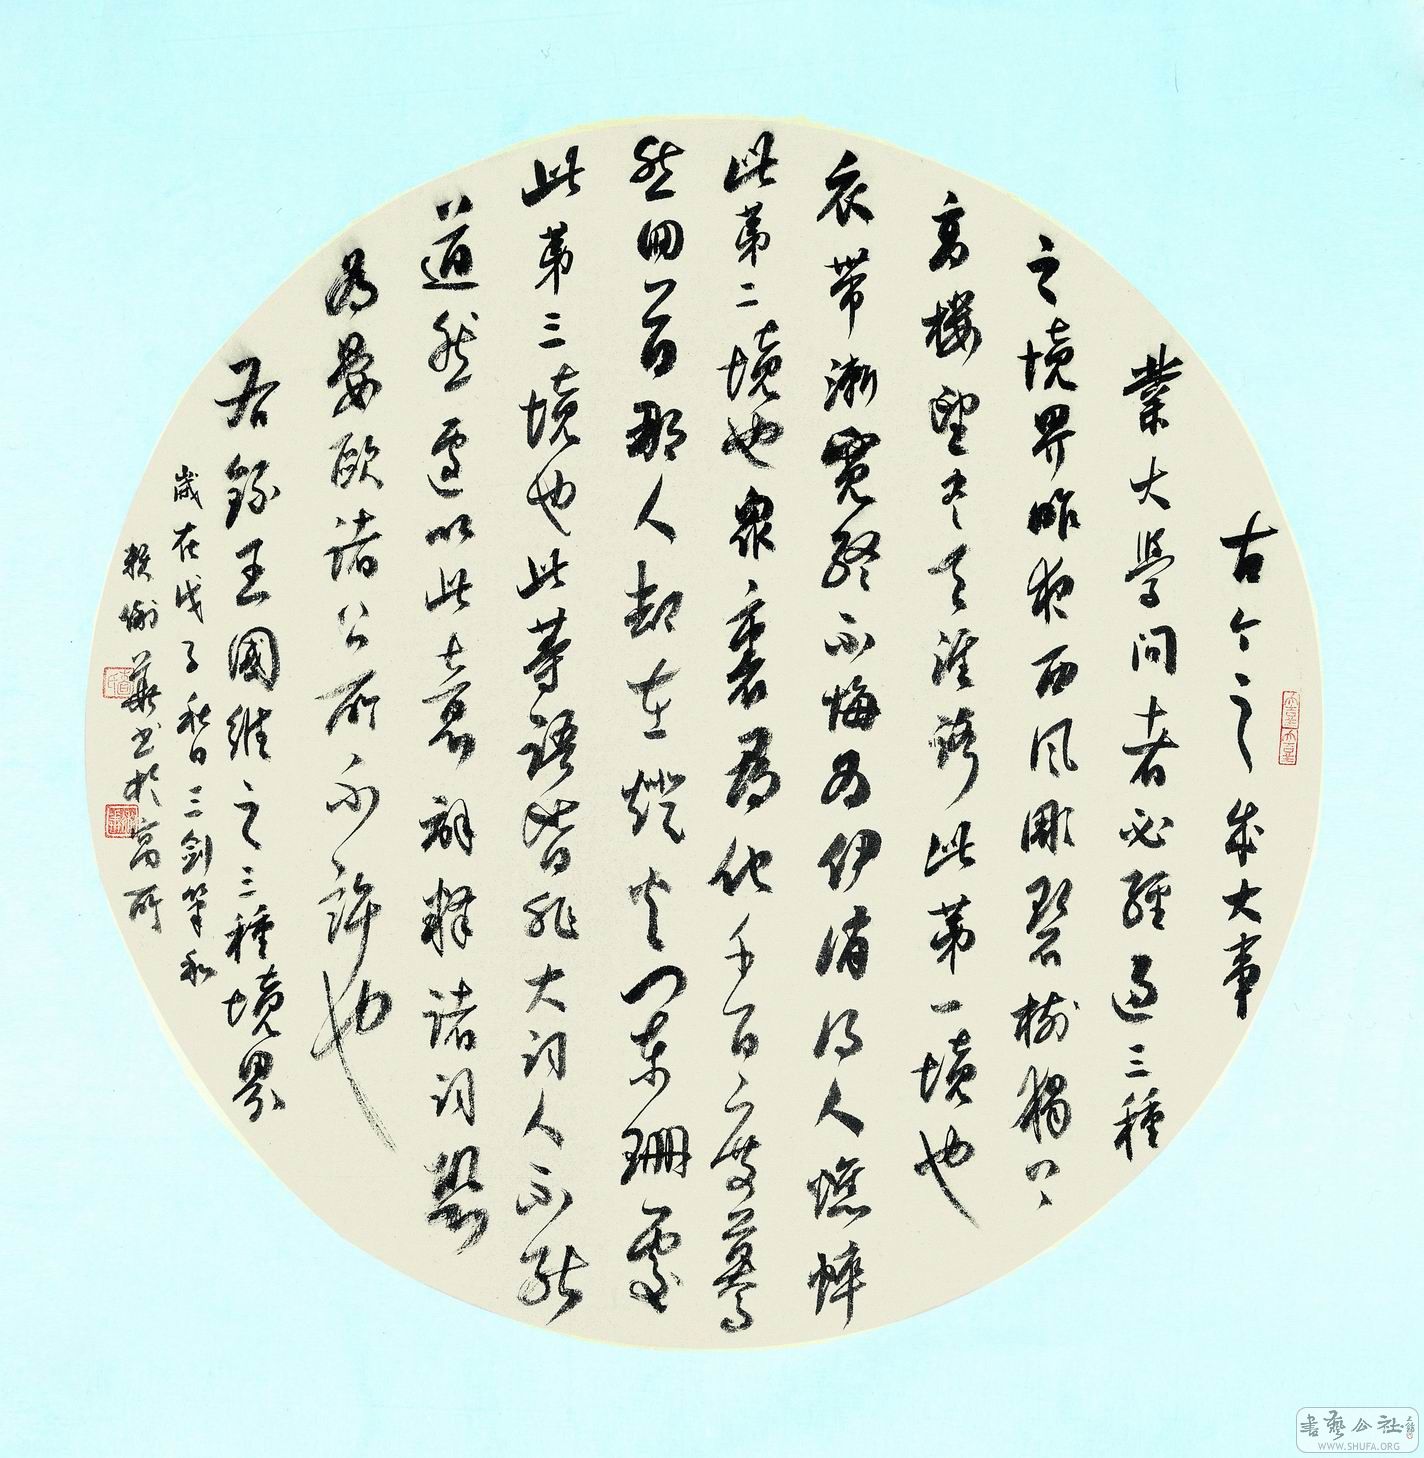 古今之成大事
業大學問者必經過三種
之境界昨夜西風凋碧樹獨上
高樓望盡天涯路此第一境也
衣帶漸寬終不悔為伊消得人憔悴
此第二境也眾裏尋他千百度驀
然回首那人却在燈火闌珊處
此第三境也此等語皆非大詞人不能
道然遽以此意解釋諸詞恐
為晏歐諸公所不許也
右錄王國維之三種境界
歲在戊子秋日三劍筆和
華書於
書藝公社
WWW.SHUFA.ORG